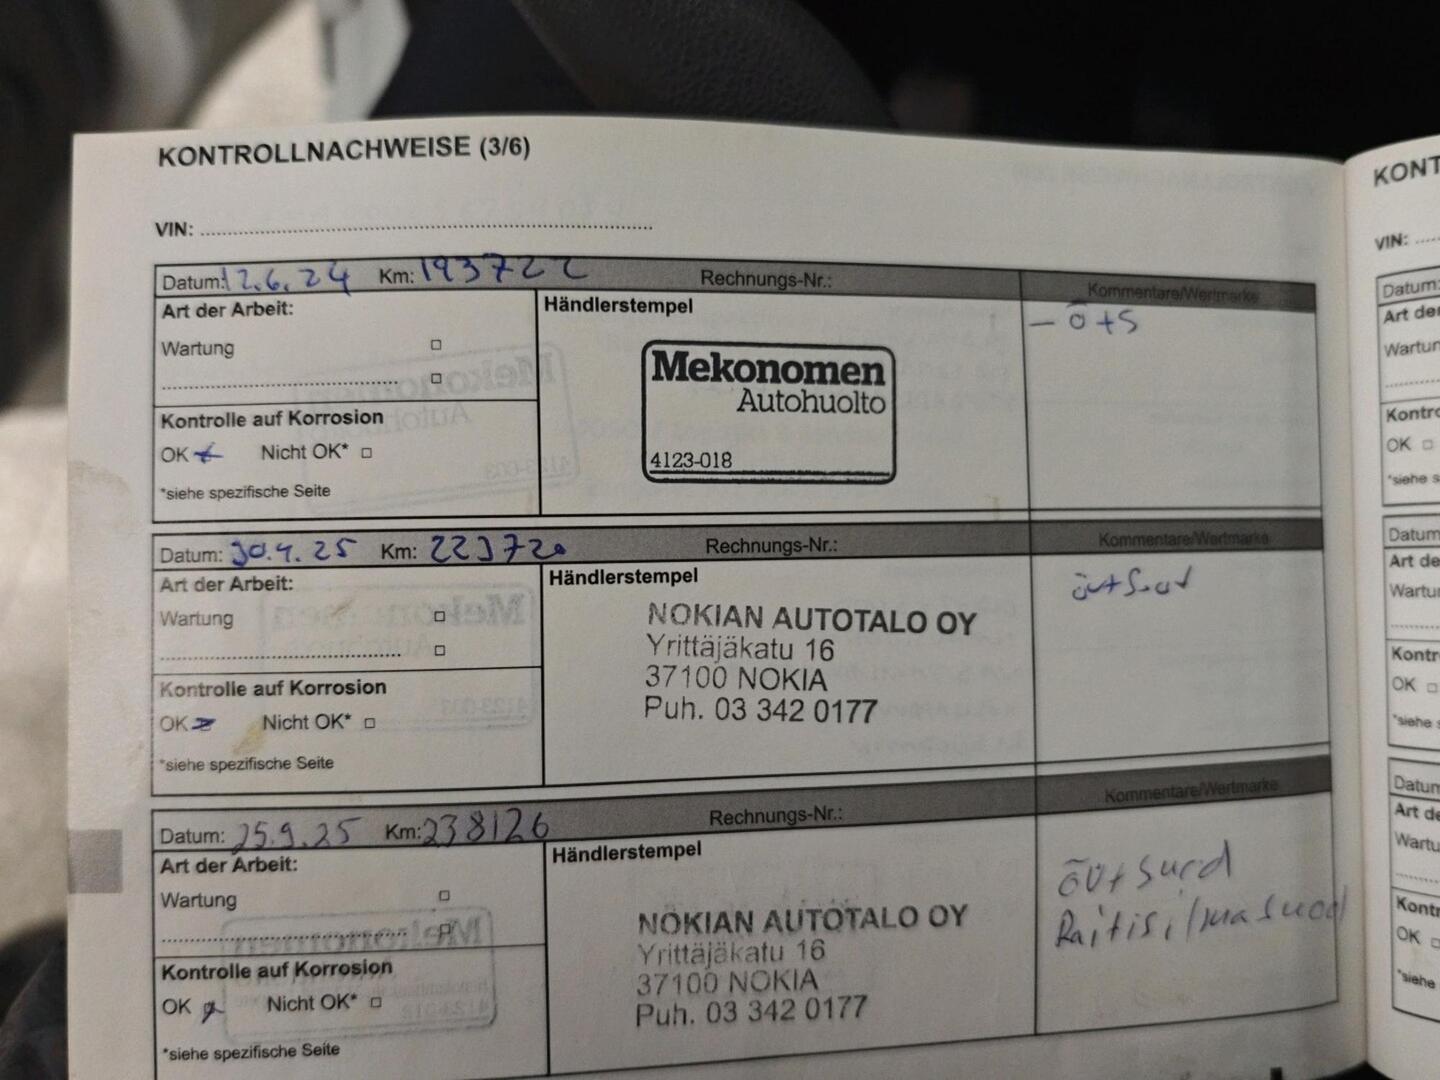 KONTROLLNACHWEISE (3/6)
VIN:
Datum: 12.6.24 Km: 193722 Rechnungs-Nr.: Kommentare/Wertmarke
Art der Arbeit: Händlerstempel
- ö+S
Wartung
Mekonomen
Autohuolto
4123-018
Kontrolle auf Korrosion
OK Nicht OK*
*siehe spezifische Seite
Datum: 30.4.25 Km: 223720 Rechnungs-Nr.: Kommentare/Wertmarke
Art der Arbeit: Händlerstempel
Wartung
NOKIAN AUTOTALO OY
Yrittäjäkatu 16
37100 NOKIA
Puh. 03 342 0177
Kontrolle auf Korrosion
OK Nicht OK*
*siehe spezifische Seite
Datum: 25.9.25 Km: 238126 Rechnungs-Nr.: Kommentare/Wertmarke
Art der Arbeit: Händlerstempel
Wartung
NOKIAN AUTOTALO OY
Yrittäjäkatu 16
37100 NOKIA
Puh. 03 342 0177
Raitisilmasuod
Kontrolle auf Korrosion
OK Nicht OK*
*siehe spezifische Seite
KONT
VIN:
Datum:
Art der
Wartun
Kontro
OK
*siehe s
Datum
Art de
Wartu
Kontr
OK
*siehe
Datum
Art de
Wartu
Kont
OK
*siehe